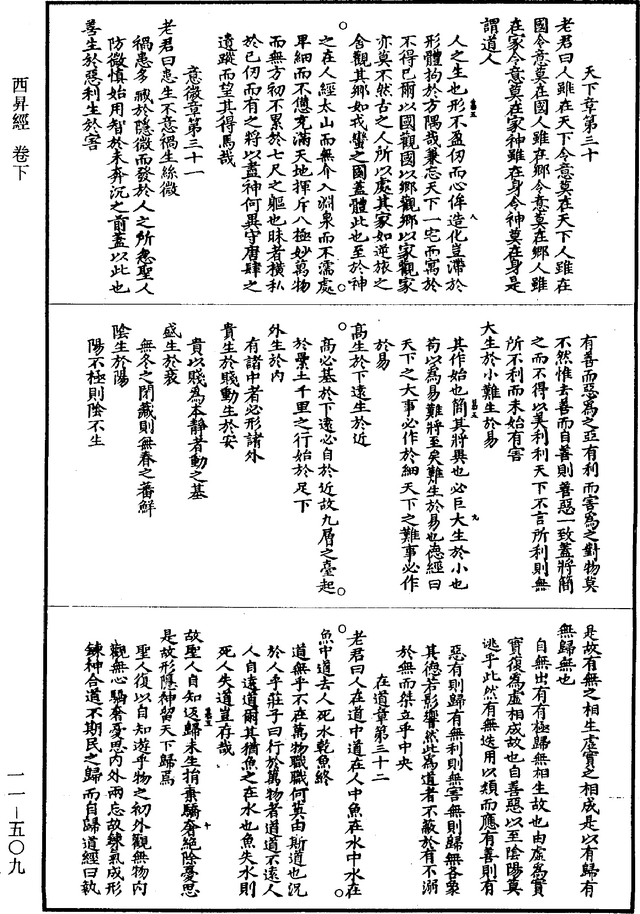 西昇經 卷下
天下章第三十
老君曰人雖在天下令意莫在天下人雖在
國令意莫在國人雖在鄉令意莫在鄉人雖
在家令意莫在家神雖在身令神莫在身是
謂道人
人之生也形不盈仞而心侔造化豈滯於
形體拘於方隅哉兼忘天下一宅而寓於
不得已爾以國觀國以鄉觀鄉以家觀家
亦莫不然古之人所以處其家如逆旅之
舍觀其鄉如戎蠻之國蓋體此也至於神
之在人經太山而無介入淵泉而不濡處
卑細而不憊充滿天地揮斥八極妙萬物
而無方初不累於七尺之軀也昧者橫私
於已仞而有之將以蓋神何異守唐肆之
遺蹤而望其得馬哉
意微章第三十一
老君曰患生不意禍生絲微
禍患多藏於隱微而發於人之所忽聖人
防微慎始用智於未奔沉之前蓋以此也
善生於惡利生於害
有善而惡為之亞有利而害為之對物莫
不然惟去善而自善則善惡一致蓋將簡
之而不得以美利利天下不言所利則無
所不利而未始有害
大生於小難生於易
其作始也簡其將畢也必巨大生於小也
苟以為易難將至矣難生於易也德經曰
天下之大事必作於細天下之難事必作
於易
高生於下遠生於近
高必基於下遠必自於近故九層之臺起
於壘土千里之行始於足下
外生於內
有諸中者必形諸外
貴生於賤動生於安
貴以賤為本靜者動之基
盛生於衰
無冬之閉藏則無春之蕃鮮
陰生於陽
陽不極則陰不生
是故有無之相生虛實之相成是以有歸有
無歸無也
自無出有有極歸無相生故也由虛為實
實復為虛相成故也自善惡以至陰陽莫
逃乎此然有無迭用以類而應有善則有
惡有則歸有無利則無害無則歸無各象
其德若影響然此為道者不蔽於有不溺
於無而桀立乎中央
在道章第三十二
老君曰人在道中道在人中魚在水中水在
魚中道去人死水乾魚終
道無乎不在萬物職職何莫由斯道也況
於人乎莊子曰行於萬物者道道不遠人
人自遠道爾其猶魚之在水也魚失水則
死人失道豈存哉
故聖人自知返歸未生捐棄驕奢絕除憂思
是故形隱神留天下歸焉
聖人復以自知遊乎物之初外觀無物內
觀無心驕奢憂思內外兩忘故練氣成形
鍊神合道不期民之歸而自歸道經曰執
一一—五〇九